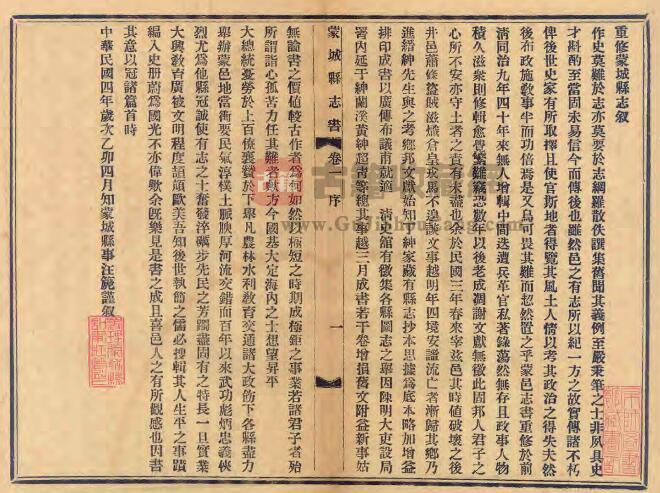 重修蒙城縣志敘
作史莫難於志亦莫要於志網羅散佚譔集舊聞其義例至嚴秉筆之士非夙具史
才斟酌至當固未易信今而傳後也雖然邑之有志所以紀一方之故實傳諸不朽
俾後世史家有所取擇且使官斯地者得覽其風土人情以考其政治之得失夫然
後布政施敎事半而功倍焉是又烏可畏其難而恝然置之乎蒙邑志書重修於前
淸同治九年四十年來無人增輯中間迭遭兵革官私著錄蕩然無存且政事人物
積久滋衆則修輯愈覺繁難竊恐數年以後老成凋謝文獻無徵此固邦人君子之
心所不安亦守土者之責有未盡也余於民國三年春來宰茲邑其時値破壞之後
井邑蕭條盜賊滋熾倉皇戎馬不遑議文事越明年四境安謐流亡者漸歸其鄉乃
進縉紳先生與之考鄉邦文獻始知 紳家藏有縣志抄本思據爲底本略加增益
排印成書以廣傳布議甫就適 淸史館有徵集各縣圖志之舉因陳明大吏設局
署內延于紳蘭溪黃紳超靑等總其事越三月成書若干卷增損舊文附益新事姑
蒙城縣志書 卷一 序 一
無論書之價値較古作者爲何如然以極短之時期成極鉅之事業若諸君子者殆
所謂誼心孤苦力任其難者歟方今國基大定海內之士想望昇平
大總統憂勞於上百僚襄贊於下舉凡農林水利敎育交通諸大政飭下各縣盡力
舉辦蒙邑地當衝要民氣淳樸土脈腴厚河流交錯而百年以來武功彪炳忠義俠
烈尤爲他縣冠誠使有志之士奮發淬礪步先民之芳躅盡固有之特長一旦實業
大興敎育廣被文明程度頡頏歐美吾知後世執簡之儒必搜輯其人生平之事蹟
編入史册蔚爲國光不亦偉歟余旣樂見是書之成且喜邑人之有所觀感也因書
其意以冠諸篇首時
中華民國四年歲次乙卯四月知蒙城縣事汪箎謹敘